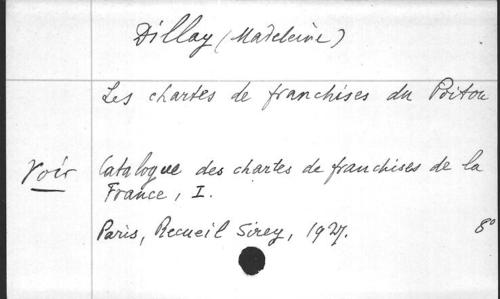 Dillay (Madeleine)
Les chartes de franchises du Poitou
Voir Catalogue des chartes de franchises de la
France, I.
Paris, Recueil Sirey, 1927. 8°